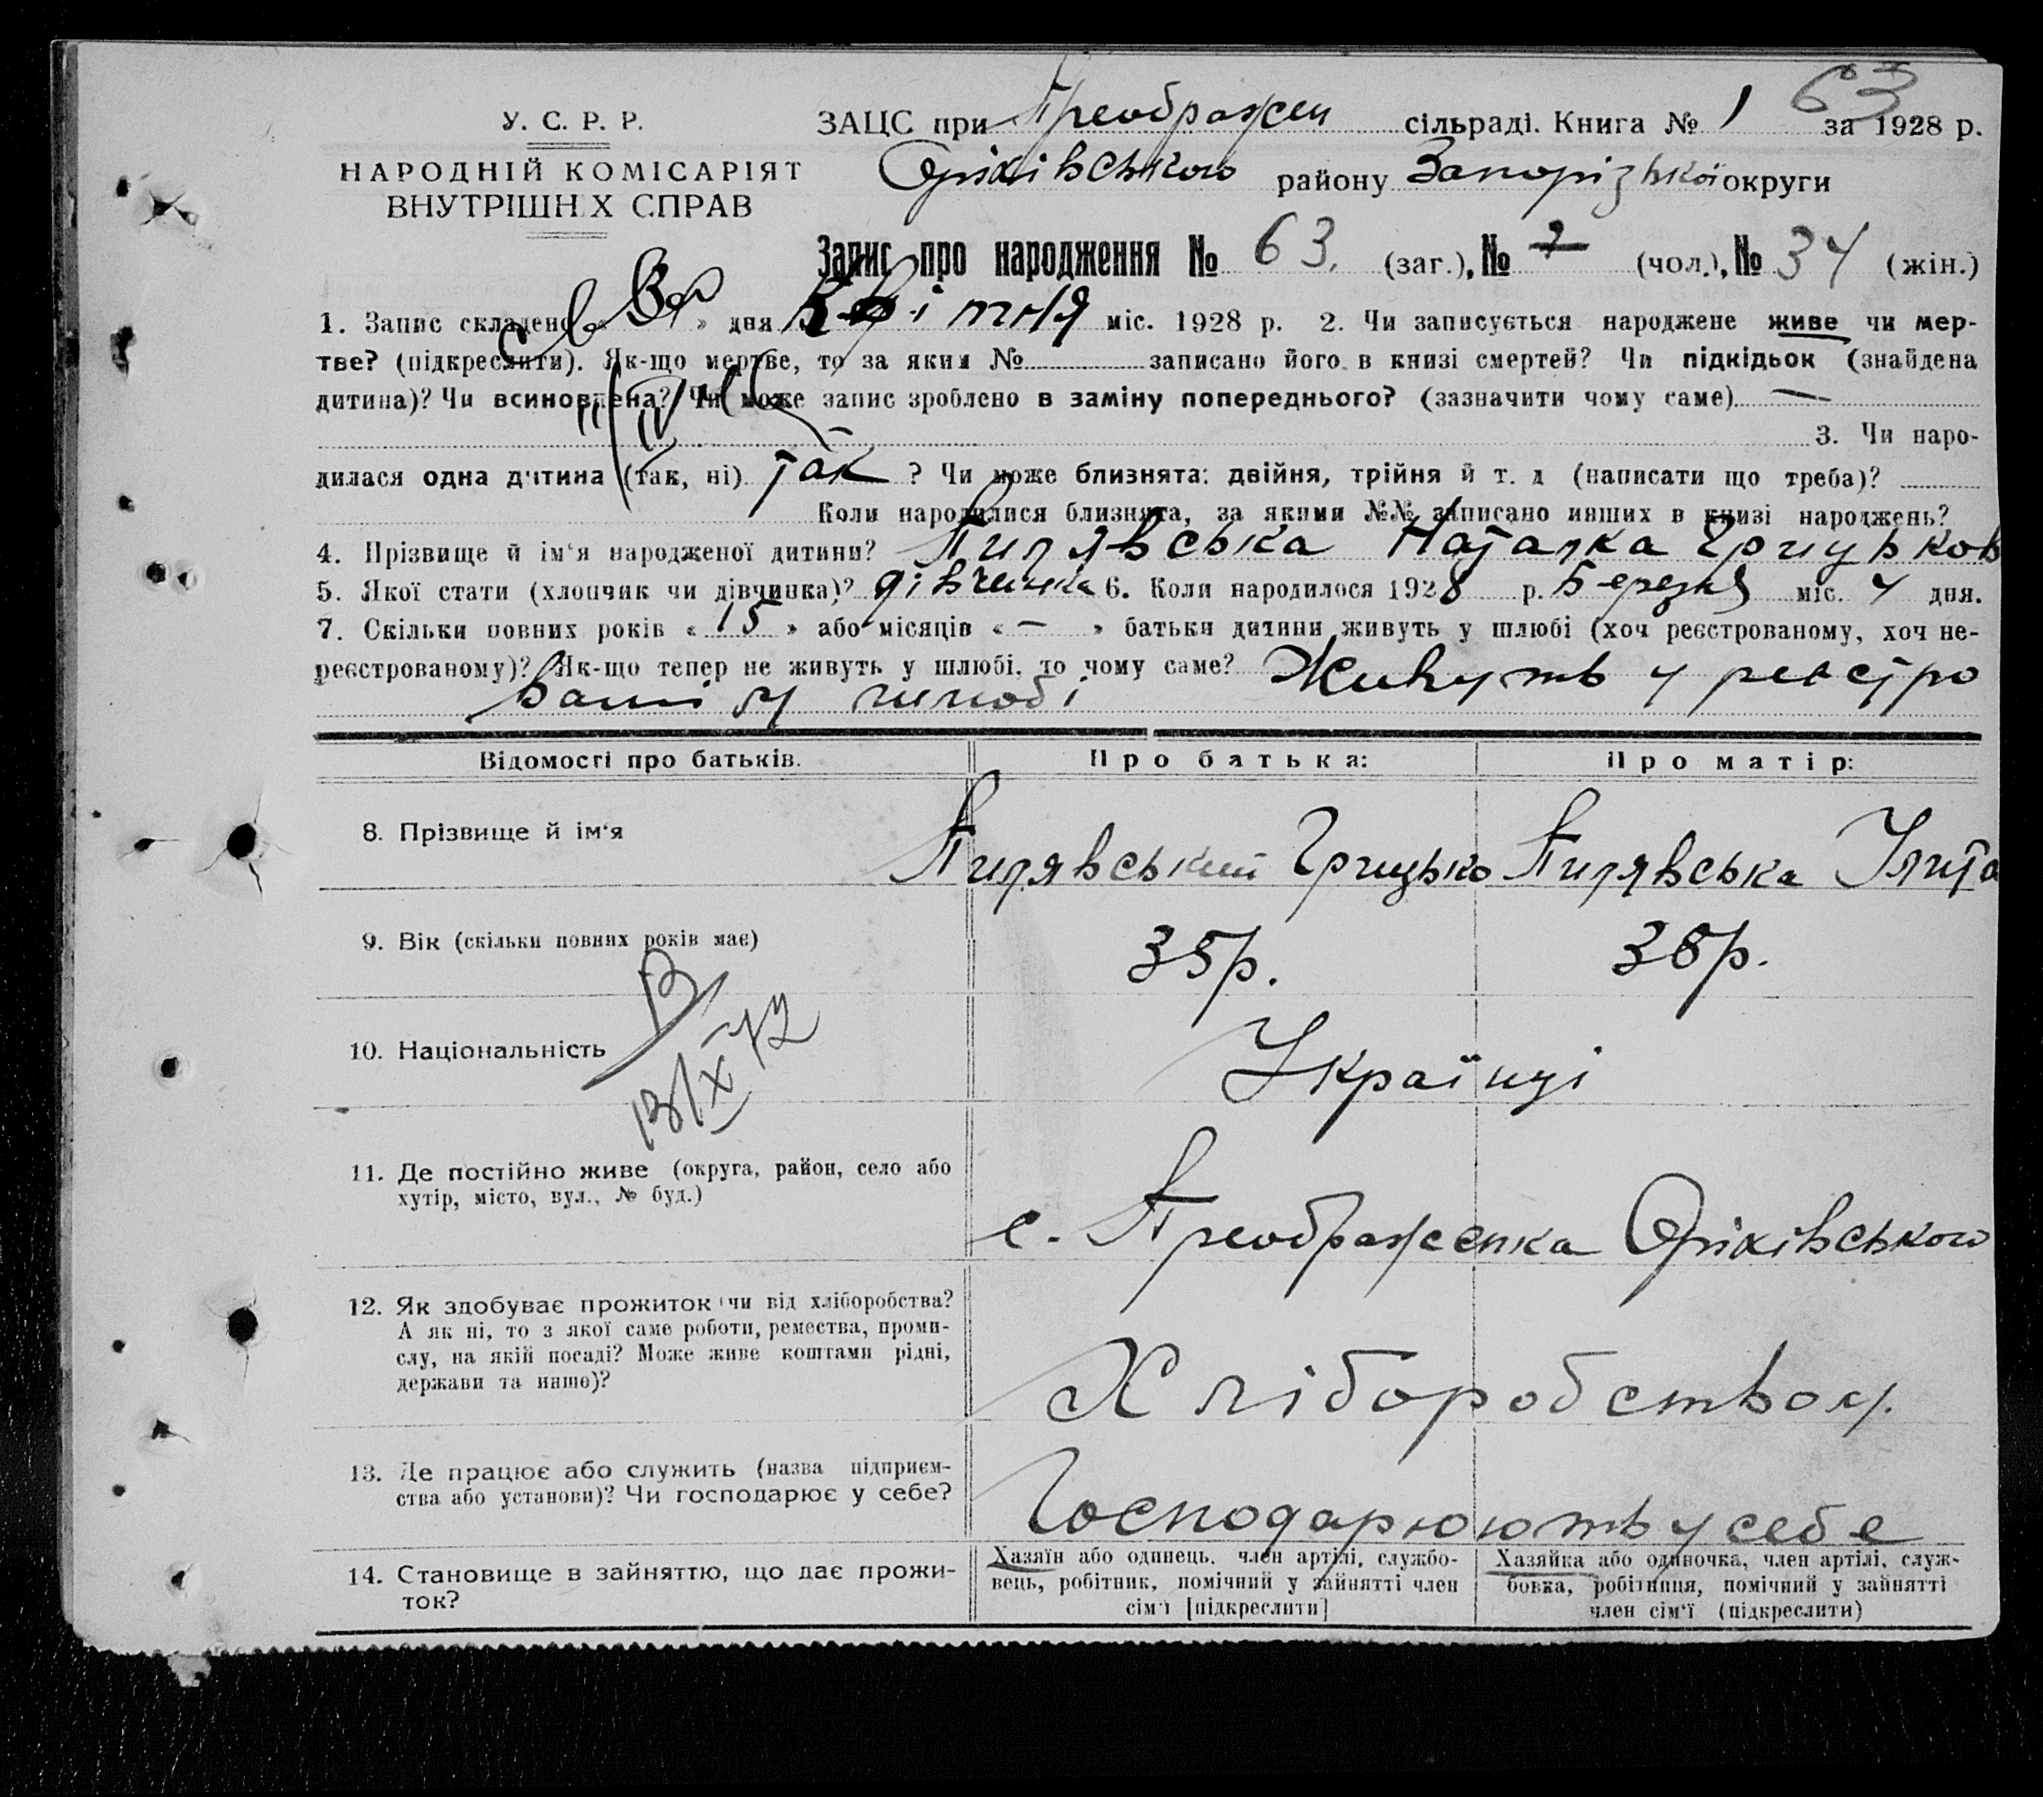 63
У. С. Р. Р.
ЗАЦС при Преображен сільраді. Книга № 1 за 1928 р.
НАРОДНІЙ КОМІСАРІЯТ
ВНУТРІШНІХ СПРАВ
Оріхівського району Запорізької округи
Запис про народження № 63. (заг.), № (чол.), № 34 (жін.)
1. Запис складено « » дня Квітня міс. 1928 р. 2. Чи записується народжене живе чи мер-
тве? (підкреслити). Як-що мертве, то за яким № записано його в книзі смертей? Чи підкідьок (знайдена
дитина)? Чи всиновлена? Чи може запис зроблено в заміну попереднього? (зазначити чому саме) —
3. Чи наро-
дилася одна дитина (так, ні) так ? Чи може близнята: двійня, трійня й т. д (написати що треба)?
Коли народилися близнята, за якими №№ записано инших в книзі народжень?
4. Прізвище й ім‘я народженої дитини? Пилявська Наталка Грицьков
5. Якої стати (хлопчик чи дівчинка)? дівчинка 6. Коли народилося 1928 р. Березня міс. 4 дня.
7. Скільки повних років « 15 » або місяців « — » батьки дитини живуть у шлюбі (хоч реєстрованому, хоч не-
реєстрованому)? Як-що тепер не живуть у шлюбі, то чому саме? Живуть у реєстро
ваному шлюбі
Відомості про батьків.
Про батька:
Про матір:
8. Прізвище й ім‘я
Пилявський Грицько
Пилявська Улита
9. Вік (скільки повних років має)
35р.
38р.
10. Національність
Українці
13/X 72
11. Де постійно живе (округа, район, село або
хутір, місто, вул., № буд.)
с. Преображенка Оріхівського
12. Як здобуває прожиток (чи від хліборобства?
А як ні, то з якої саме роботи, ремества, проми-
слу, на якій посаді? Може живе коштами рідні,
держави та инше)?
Хліборобством.
13. Де працює або служить (назва підприєм-
ства або установи)? Чи господарює у себе?
Господарюють у себе
14. Становище в зайняттю, що дає прожи-
ток?
Хазяїн або одинець, член артілі, службо-
вець, робітник, помічний у зайнятті член
сім‘ї [підкреслити]
Хазяйка або одиночка, член артілі, служ-
бовка, робітниця, помічний у зайнятті
член сім‘ї (підкреслити)